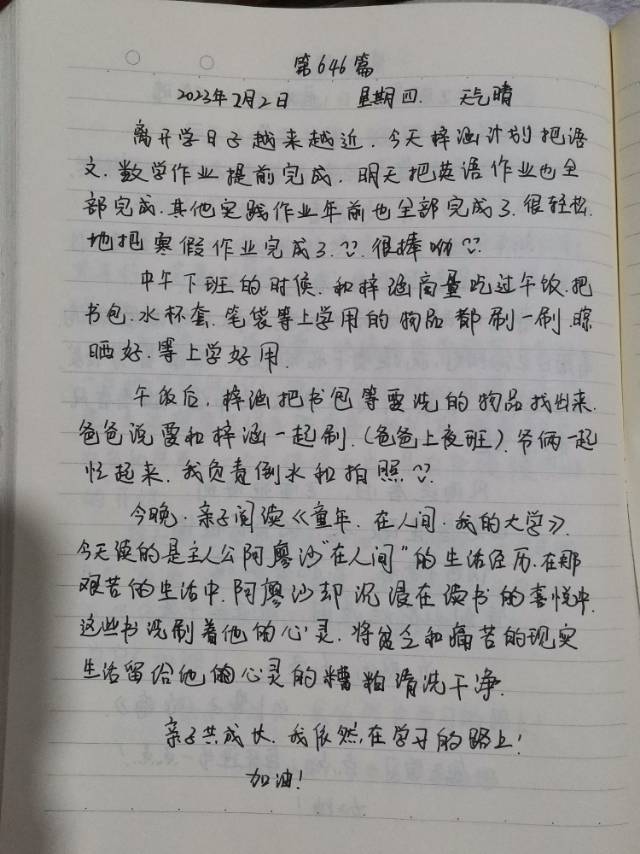 第646篇
2023年2月2日 星期四. 天气晴
离开学日子越来越近. 今天梓涵计划把语
文. 数学作业提前完成. 明天把英语作业也全
部完成. 其他实践作业年前也全部完成了. 很轻松.
地把寒假作业完成了. 很棒呦
中午下班的时候. 和梓涵商量吃过午饭. 把
书包. 水杯套. 笔袋等上学用的物品都刷一刷. 晾
晒好. 等上学好用.
午饭后. 梓涵把书包等要洗的物品找出来.
爸爸说要和梓涵一起刷. (爸爸上夜班). 爷俩一起
忙起来. 我负责倒水和拍照
今晚. 亲子阅读《童年. 在人间. 我的大学》.
今天读的是主人公阿廖沙“在人间”的生活经历. 在那
艰苦的生活中. 阿廖沙却沉浸在读书的喜悦中.
这些书洗刷着他的心灵. 将贫乏和痛苦的现实
生活留给他的心灵的糟粕清洗干净.
亲子共成长. 我依然在学习的路上!
加油!